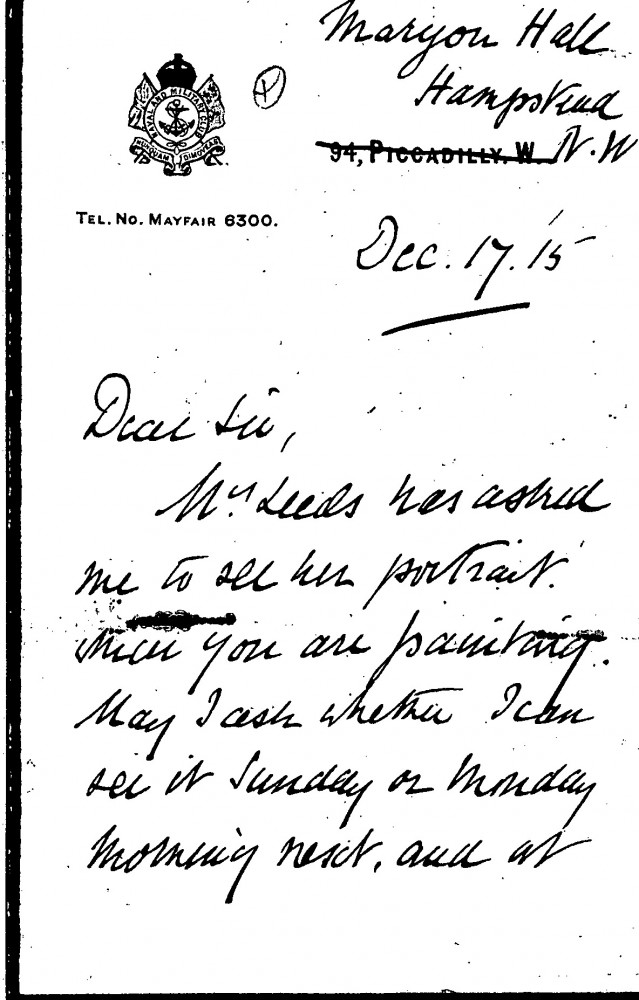 Maryon Hall
Hampstead
NAVAL AND MILITARY CLUB
94, PICCADILLY. W. N.W
TEL. NO. MAYFAIR 6300.
Dec. 17. 15
Dear Sir,
Mrs. Leeds has asked
me to see her portrait
which you are painting.
May I ask whether I can
see it Sunday or Monday
morning next, and at